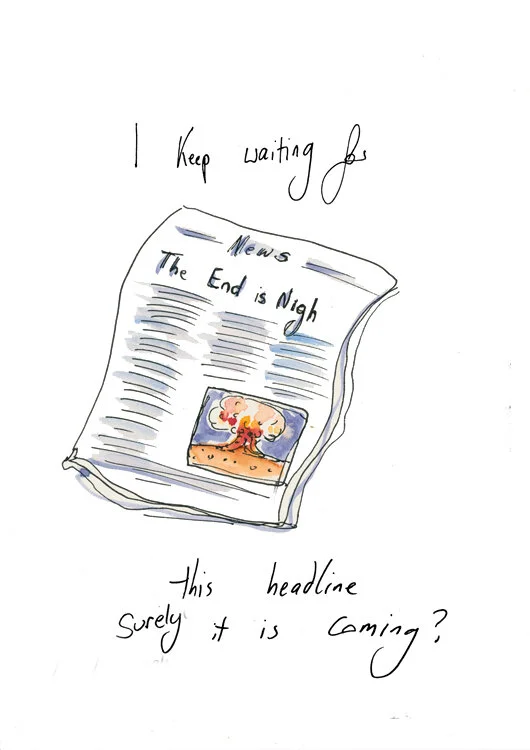 I Keep waiting for
News
The End is Nigh
this headline
Surely it is coming?